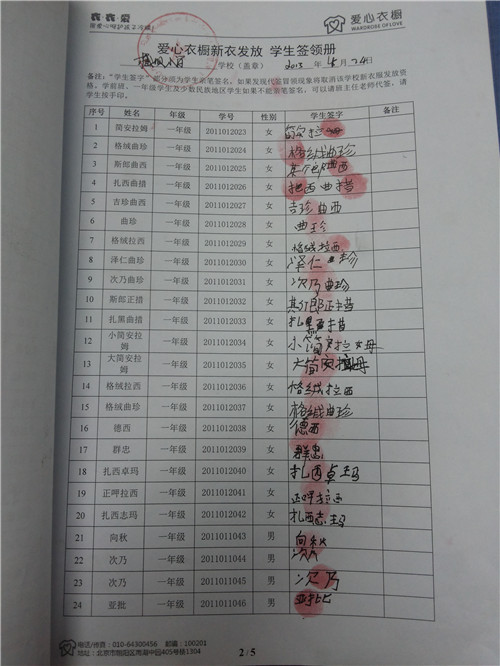 爱心衣橱
WARDROBE OF LOVE
爱心衣橱新衣发放 学生签领册
小学 学校（盖章） 2013 年 5 月 24日
备注："学生签字"部分须为学生亲笔签名，如果发现代签冒领现象将取消该学校新衣服发放资
格，学前班、一年级学生及少数民族地区学生如果不能亲笔签名，可以请班主任老师代签，请
学生按手印。
序号 姓名 年级 学号 性别 学生签字 备注
1 简安拉姆 一年级 2011012023 女
2 格绒曲珍 一年级 2011012024 女 格绒曲珍
3 斯郎曲西 一年级 2011012025 女 其郎曲西
4 扎西曲措 一年级 2011012026 女 把西曲措
5 吉珍曲西 一年级 2011012027 女 吉珍曲西
6 曲珍 一年级 2011012028 女 曲珍
7 格绒拉西 一年级 2011012029 女 格绒拉西
8 泽仁曲珍 一年级 2011012030 女 泽仁曲珍
9 次乃曲珍 一年级 2011012031 女 次乃曲珍
10 斯郎正措 一年级 2011012032 女 郎正措
11 扎黑曲措 一年级 2011012033 女 扎黑曲措
12 小简安拉姆 一年级 2011012034 女 小简安拉母
13 大简安拉姆 一年级 2011012035 女 大简安拉母
14 格绒拉西 一年级 2011012036 女 格绒拉西
15 格绒曲珍 一年级 2011012037 女 格绒曲珍
16 德西 一年级 2011012038 女 德西
17 群忠 一年级 2011012039 女 群忠
18 扎西卓玛 一年级 2011012040 女 扎西卓玛
19 正呷拉西 一年级 2011012041 女 正呷拉西
20 扎西志玛 一年级 2011012042 女 扎西志玛
21 向秋 一年级 2011011043 男 向秋
22 次乃 一年级 2011011044 男
23 次乃 一年级 2011011045 男 次乃
24 亚批 一年级 2011011046 男 亚批
电话/传真：010-64300456 邮编：100201
地址：北京市朝阳区将府中园405号楼1304
2 / 5